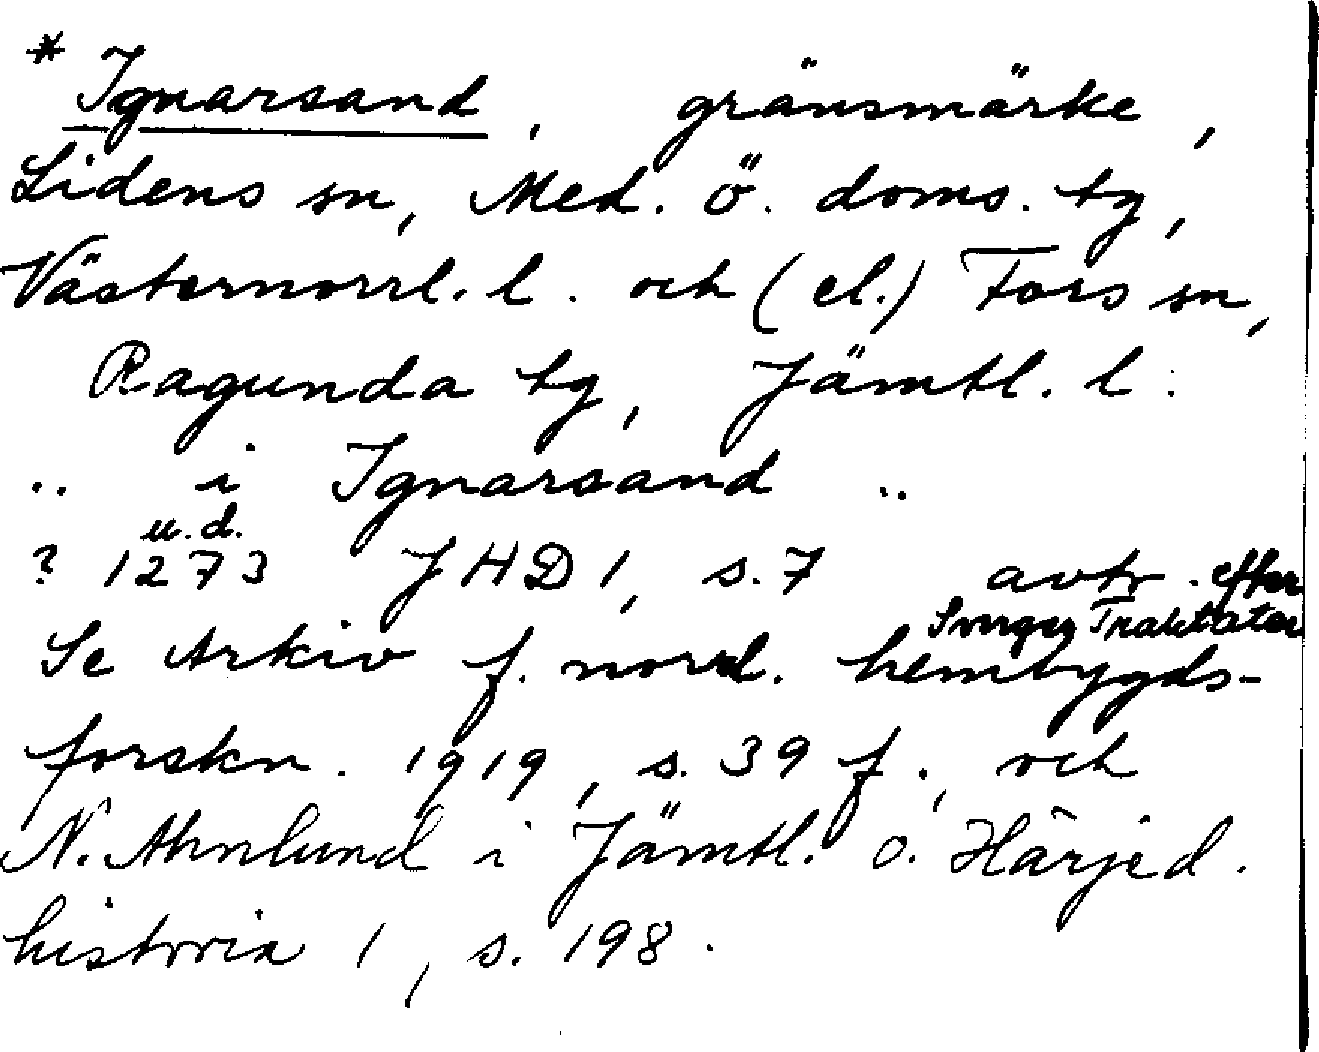 * Ignarsand, gränsmärke,
Lidens sn, Med. ö. doms. tg,
Västernorrl. l. och (el.) Fors sn,
Ragunda tg, Jämtl. l.
.. i Ignarsand ..
u.d.
? 1273 JHD 1, s. 7 avtr. efter
Sverges Traktater
Se Arkiv f. norrl. hembygds-
forskn. 1919, s. 39 f., och
N. Ahnlund i Jämtl. o. Härjed.
historia 1, s. 198.